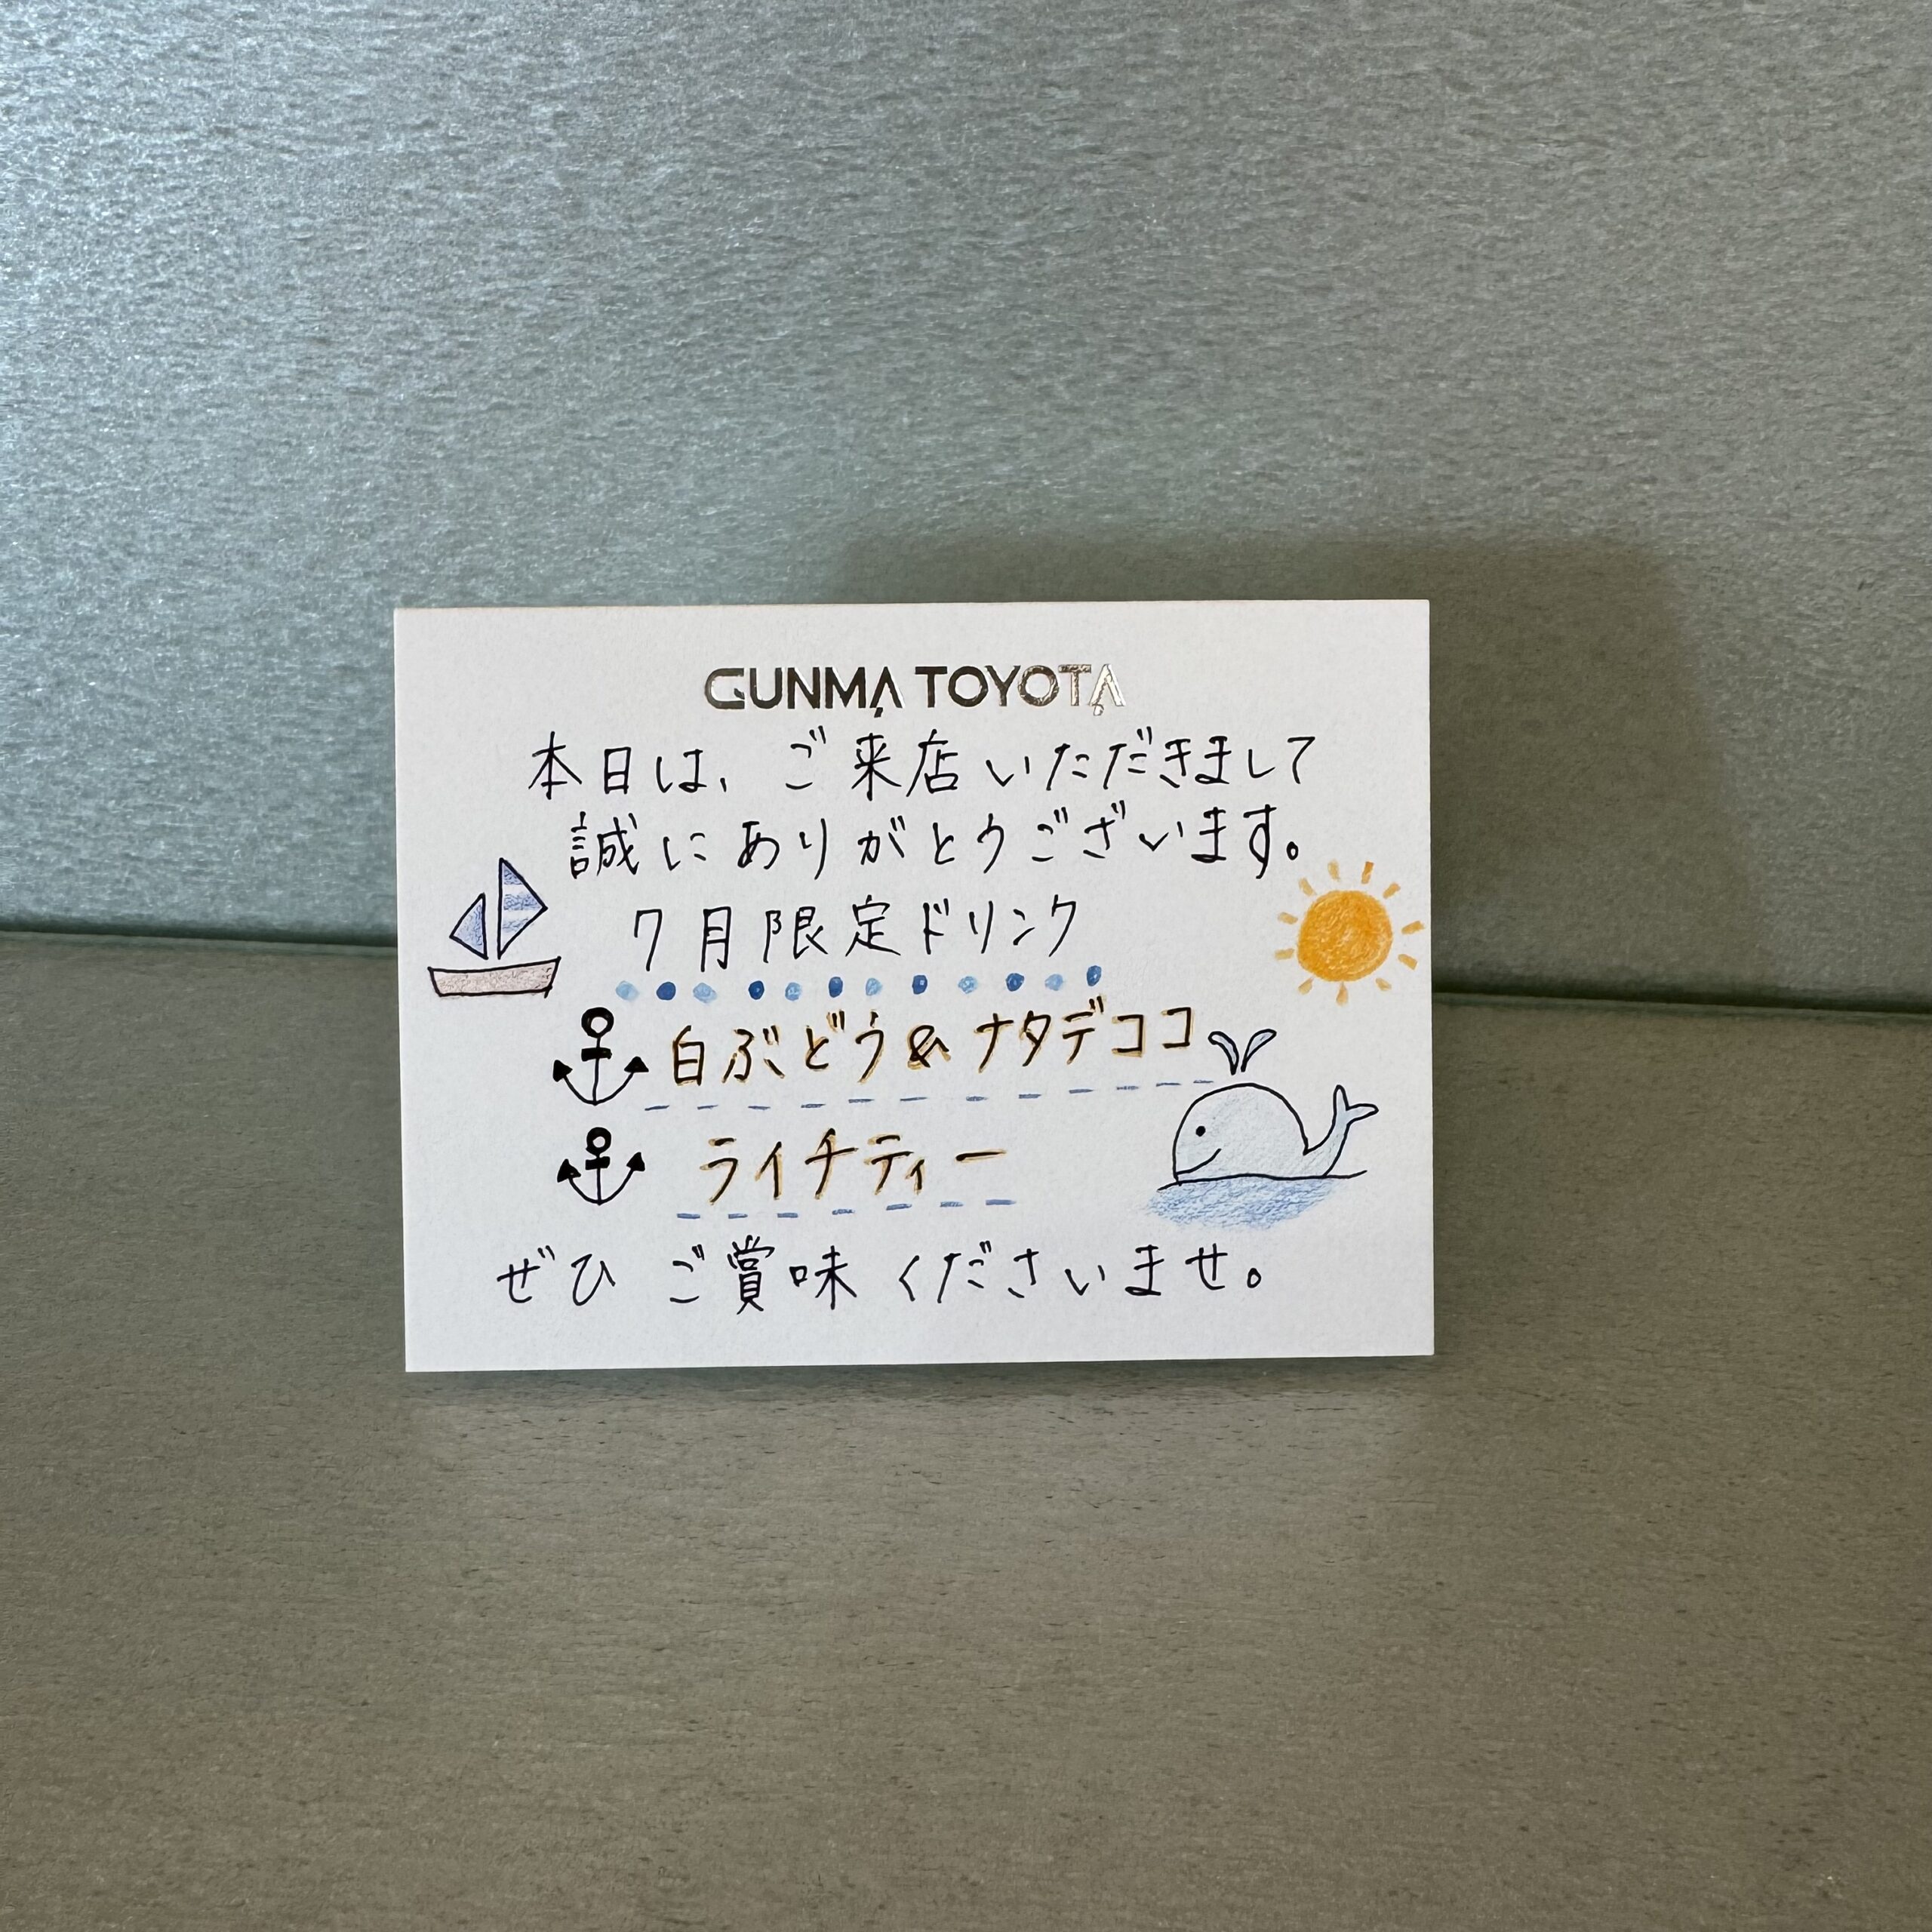 GUNMA TOYOTA
本日は、ご来店いただきまして
誠にありがとうございます。
7月限定ドリンク
白ぶどう&ナタデココ
ライチティー
ぜひ ご賞味くださいませ。